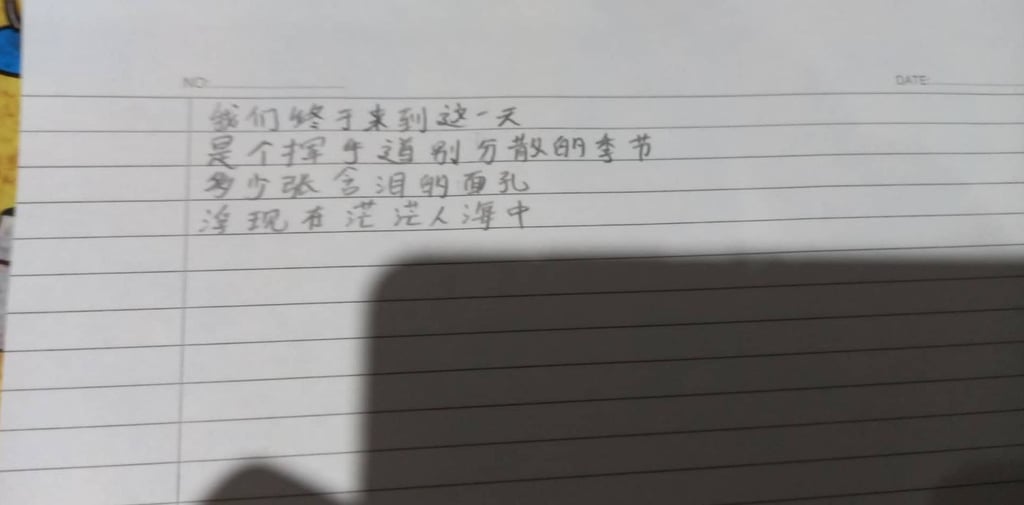 NO:
DATE:
我们终于来到这一天
是个挥手道别分散的季节
多少张含泪的面孔
浮现在茫茫人海中